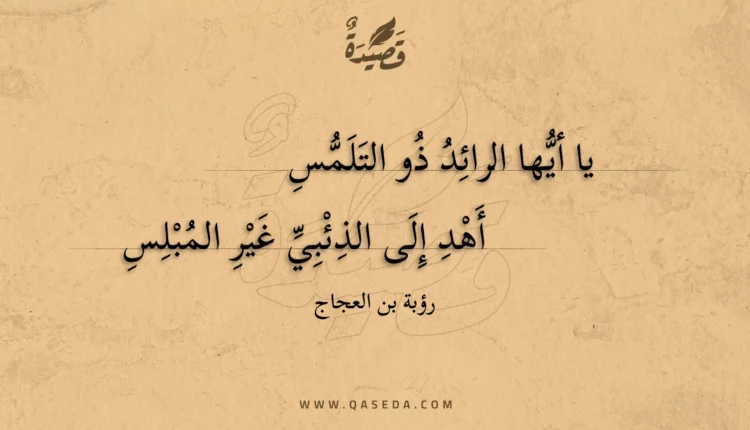 قَصِيْدَةٌ
يا أيُّها الرائِدُ ذُو التَلَمُّسِ
أَهْدِ إِلَى الذِئْبِيِّ غَيْرِ المُبْلِسِ
رؤبة بن العجاج
WWW.QASEDA.COM